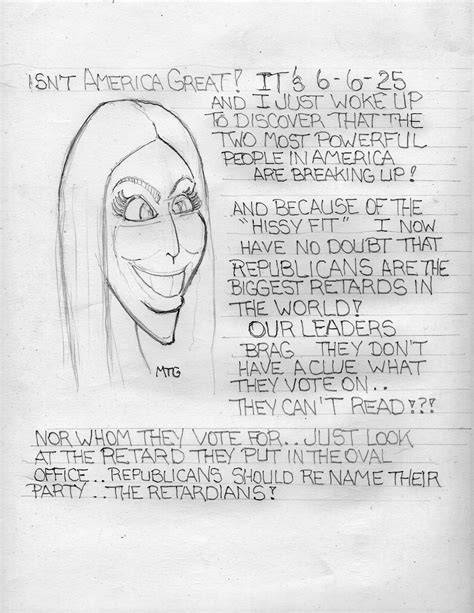 ISN'T AMERICA GREAT! IT'S 6-6-25
AND I JUST WOKE UP
TO DISCOVER THAT THE
TWO MOST POWERFUL
PEOPLE IN AMERICA
ARE BREAKING UP!
AND BECAUSE OF THE
"HISSY FIT" I NOW
HAVE NO DOUBT THAT
REPUBLICANS ARE THE
BIGGEST RETARDS IN
THE WORLD!
OUR LEADERS
BRAG THEY DON'T
HAVE A CLUE WHAT
THEY VOTE ON..
THEY CAN'T READ!?!
MTG
NOR WHOM THEY VOTE FOR.. JUST LOOK
AT THE RETARD THEY PUT IN THE OVAL
OFFICE.. REPUBLICANS SHOULD RE NAME THEIR
PARTY.. THE RETARDIANS!